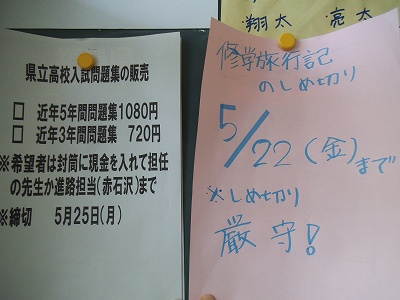 県立高校入試問題集の販売
□ 近年5年間問題集1080円
□ 近年3年間問題集 720円
※希望者は封筒に現金を入れて担任
の先生か進路担当(赤石沢)まで
※締切 5月25日(月)
翔太 亮太
修学旅行記
のしめ切り
5/22(金)まで
※しめ切り
厳守!